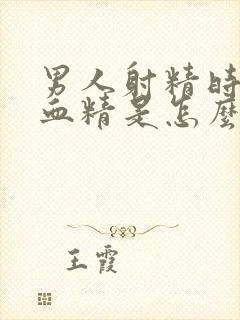 男人射精时
血精是怎么
王霞